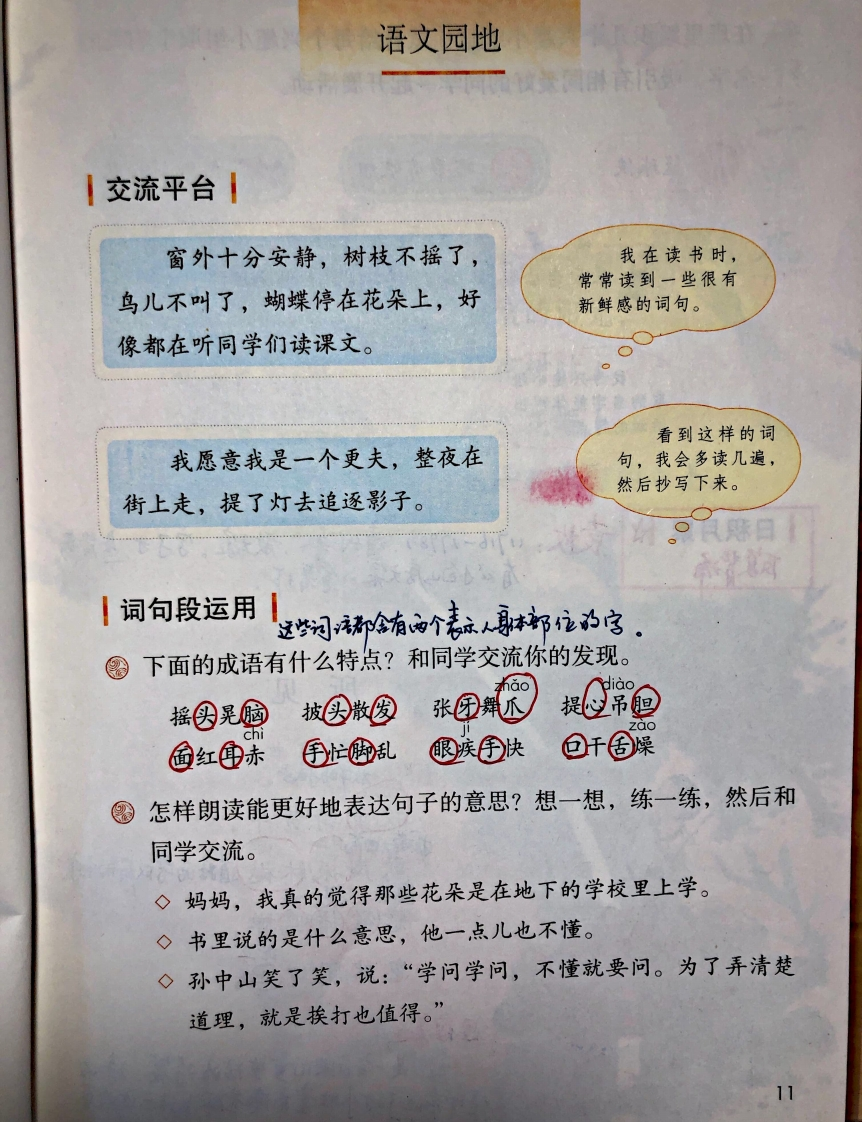 语文园地
交流平台
窗外十分安静，树枝不摇了，
鸟儿不叫了，蝴蝶停在花朵上，好
像都在听同学们读课文。
我在读书时，
常常读到一些很有
新鲜感的词句。
我愿意我是一个更夫，整夜在
街上走，提了灯去追逐影子。
看到这样的词
句，我会多读几遍，
然后抄写下来。
词句段运用
这些词语都含有两个表示人身体部位的字。
下面的成语有什么特点？和同学交流你的发现。
zhǎo diào
摇头晃脑 披头散发 张牙舞爪 提心吊胆
chì jí zào
面红耳赤 手忙脚乱 眼疾手快 口干舌燥
怎样朗读能更好地表达句子的意思？想一想，练一练，然后和
同学交流。
妈妈，我真的觉得那些花朵是在地下的学校里上学。
书里说的是什么意思，他一点儿也不懂。
孙中山笑了笑，说：“学问学问，不懂就要问。为了弄清楚
道理，就是挨打也值得。”
11